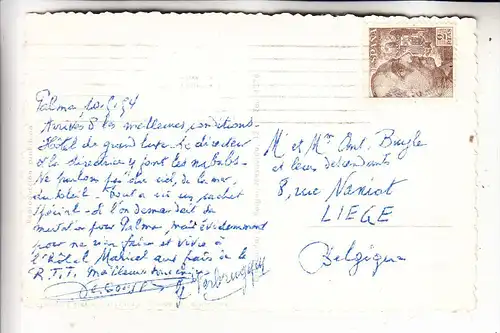 ESPAÑA
Palma 10.5.54
Arrivés ds les meilleures conditions.
Hôtel de grand luxe. Le directeur
et la directrice y font les
Ne parlons pas du ciel, de la mer,
du soleil. Tout a un cachet
spécial. Si l'on demandait
mutation pour Palma, mais évidemment
pour ne rien faire et vivre à
l'Hôtel Maricel aux frais de la
R.T.T. Meilleurs
Verbruggen
Mr et Mme Ant. Bugle
et leurs descendants
8, rue Naniot
LIEGE
Belgique